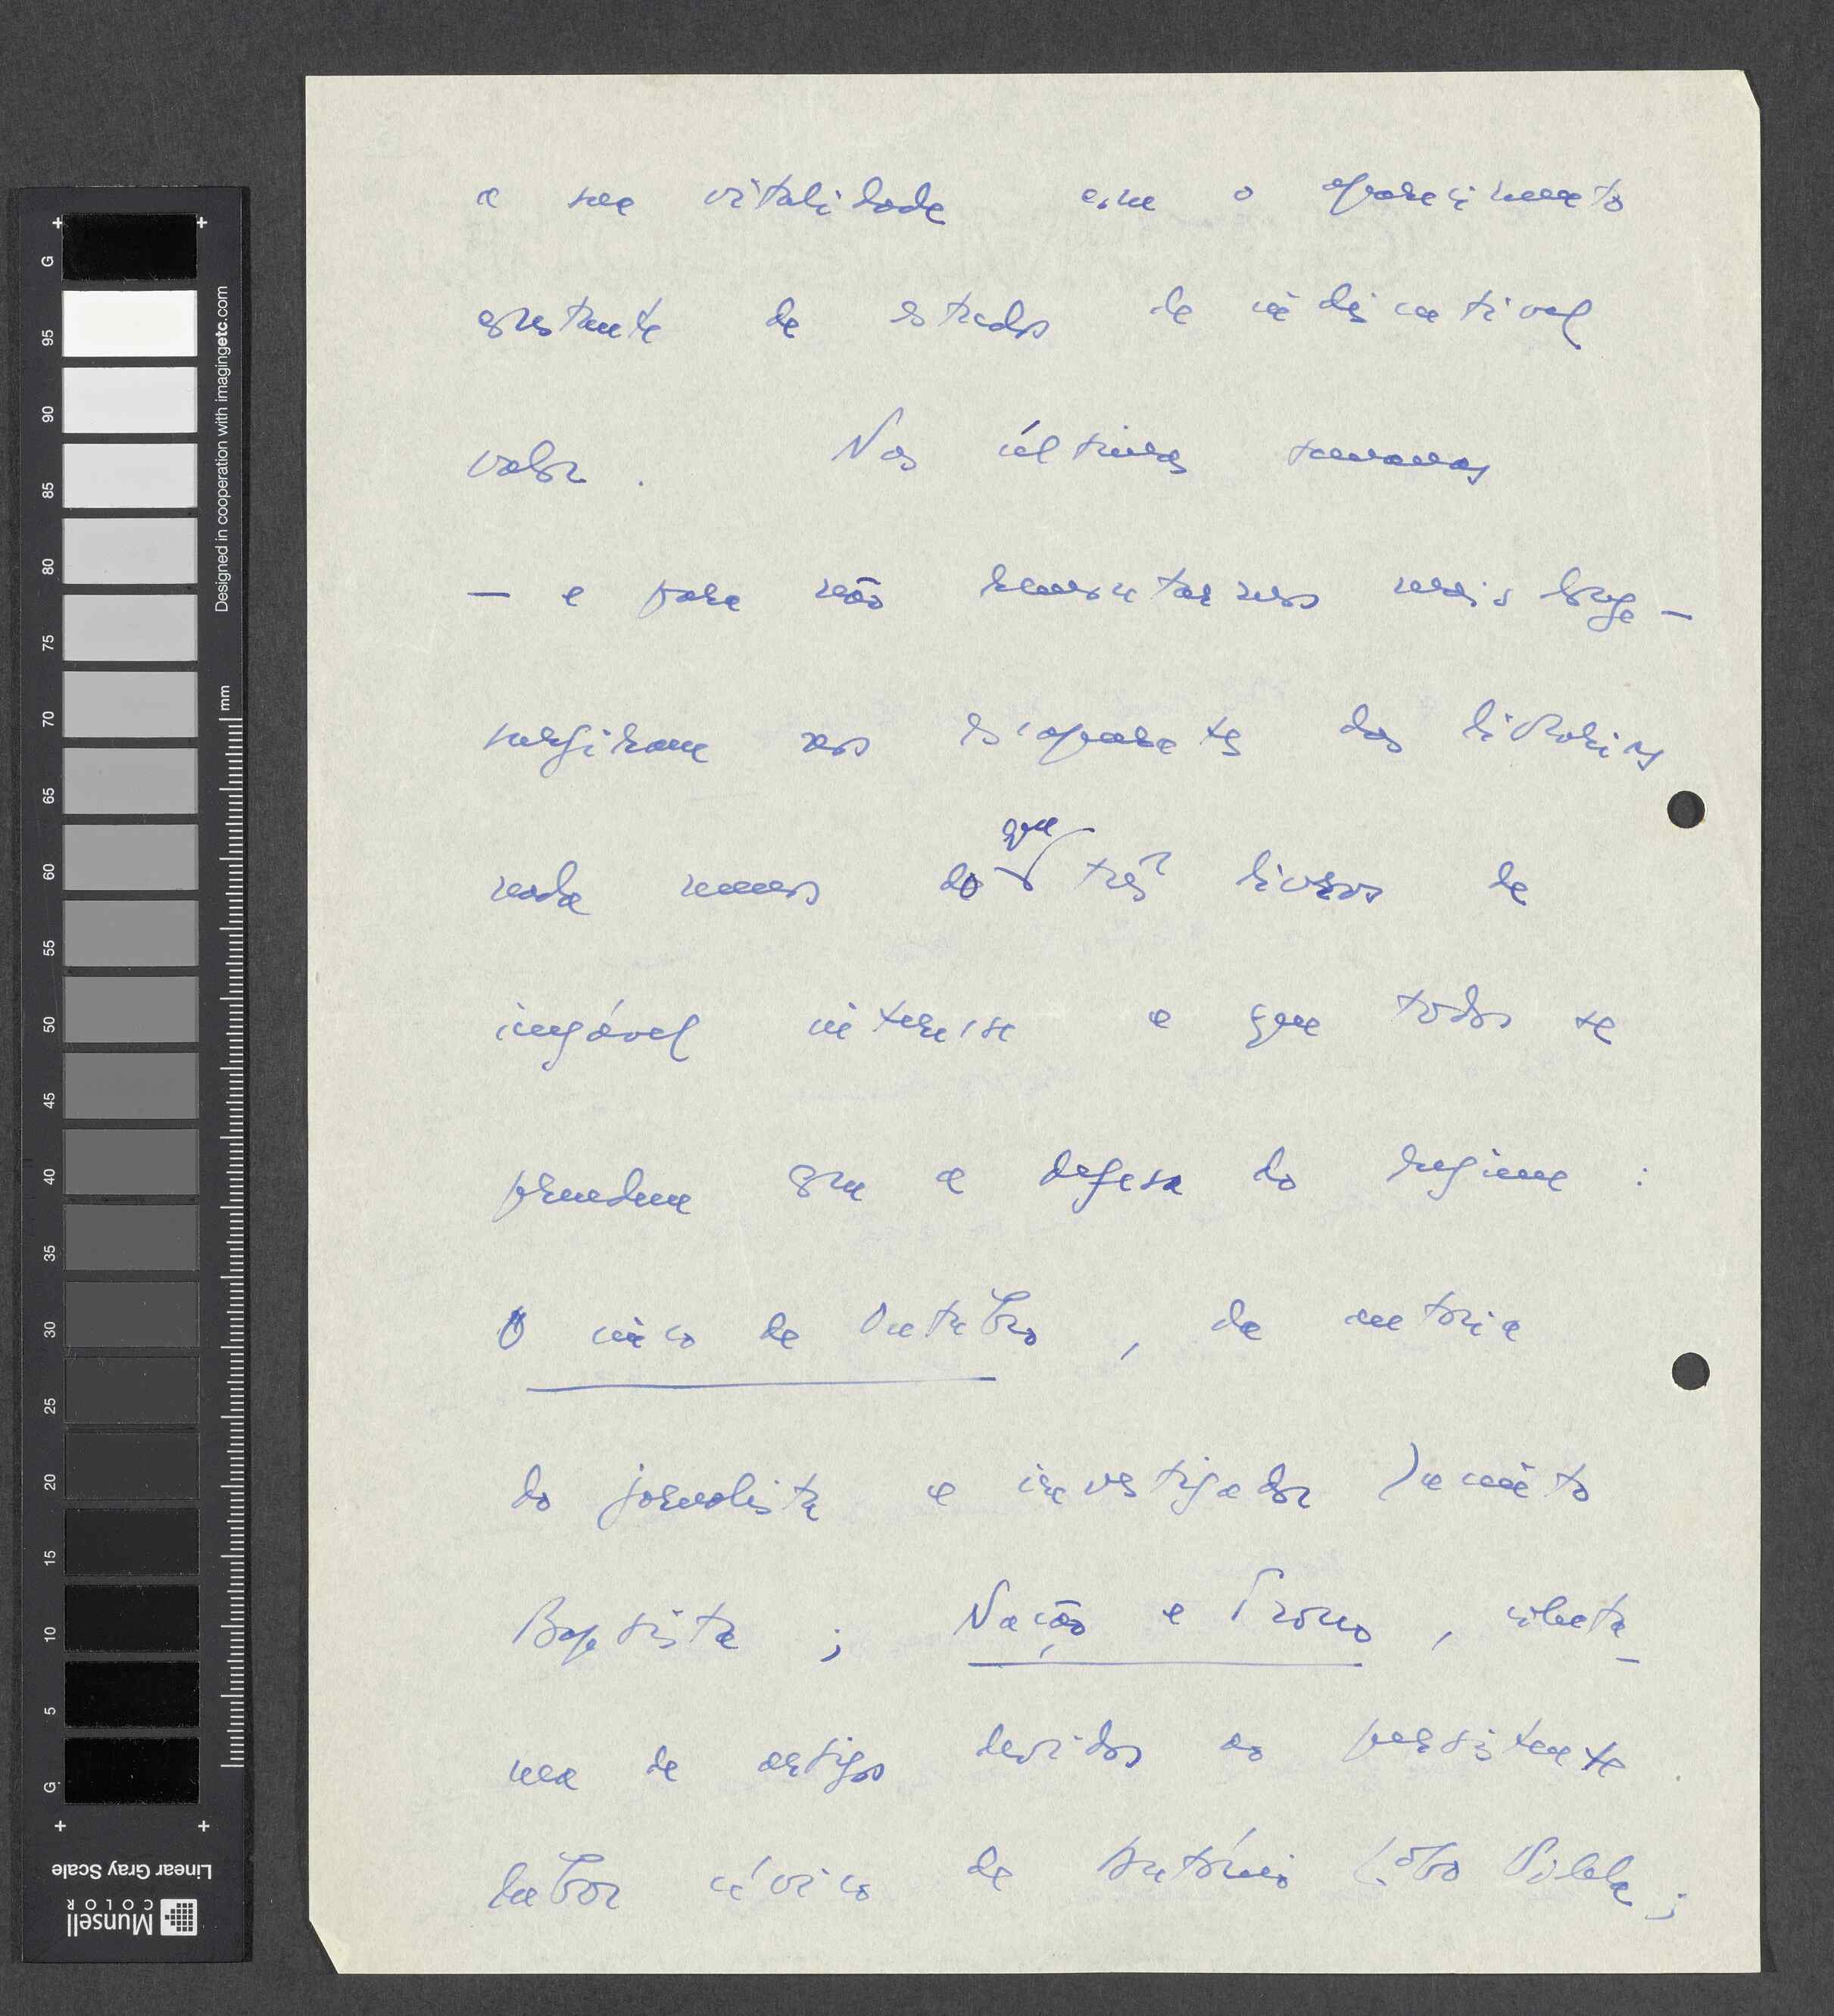 a sua vitalidade com o aparecimento
constante de estudos de indiscutível
valor. Nas últimas semanas
— e para não remontarmos mais longe —
surgiram nos escaparates das livrarias
nada menos do que três livros de
inegável interesse e que todos se
prendem com a defesa do regime :
O cinco de Outubro, da autoria
do jornalista e investigador Jacinto
Baptista ; Nação e Trono, colectâ-
nea de artigos devidos ao persistente
labor cívico de António Lôbo Vilela ;
G 95 90 85 80 75 70 65 60 55 50 45 40 35 30 25 20 15 10 5 G
Designed in cooperation with imagingetc.com
mm
Linear Gray Scale
Munsell
COLOR